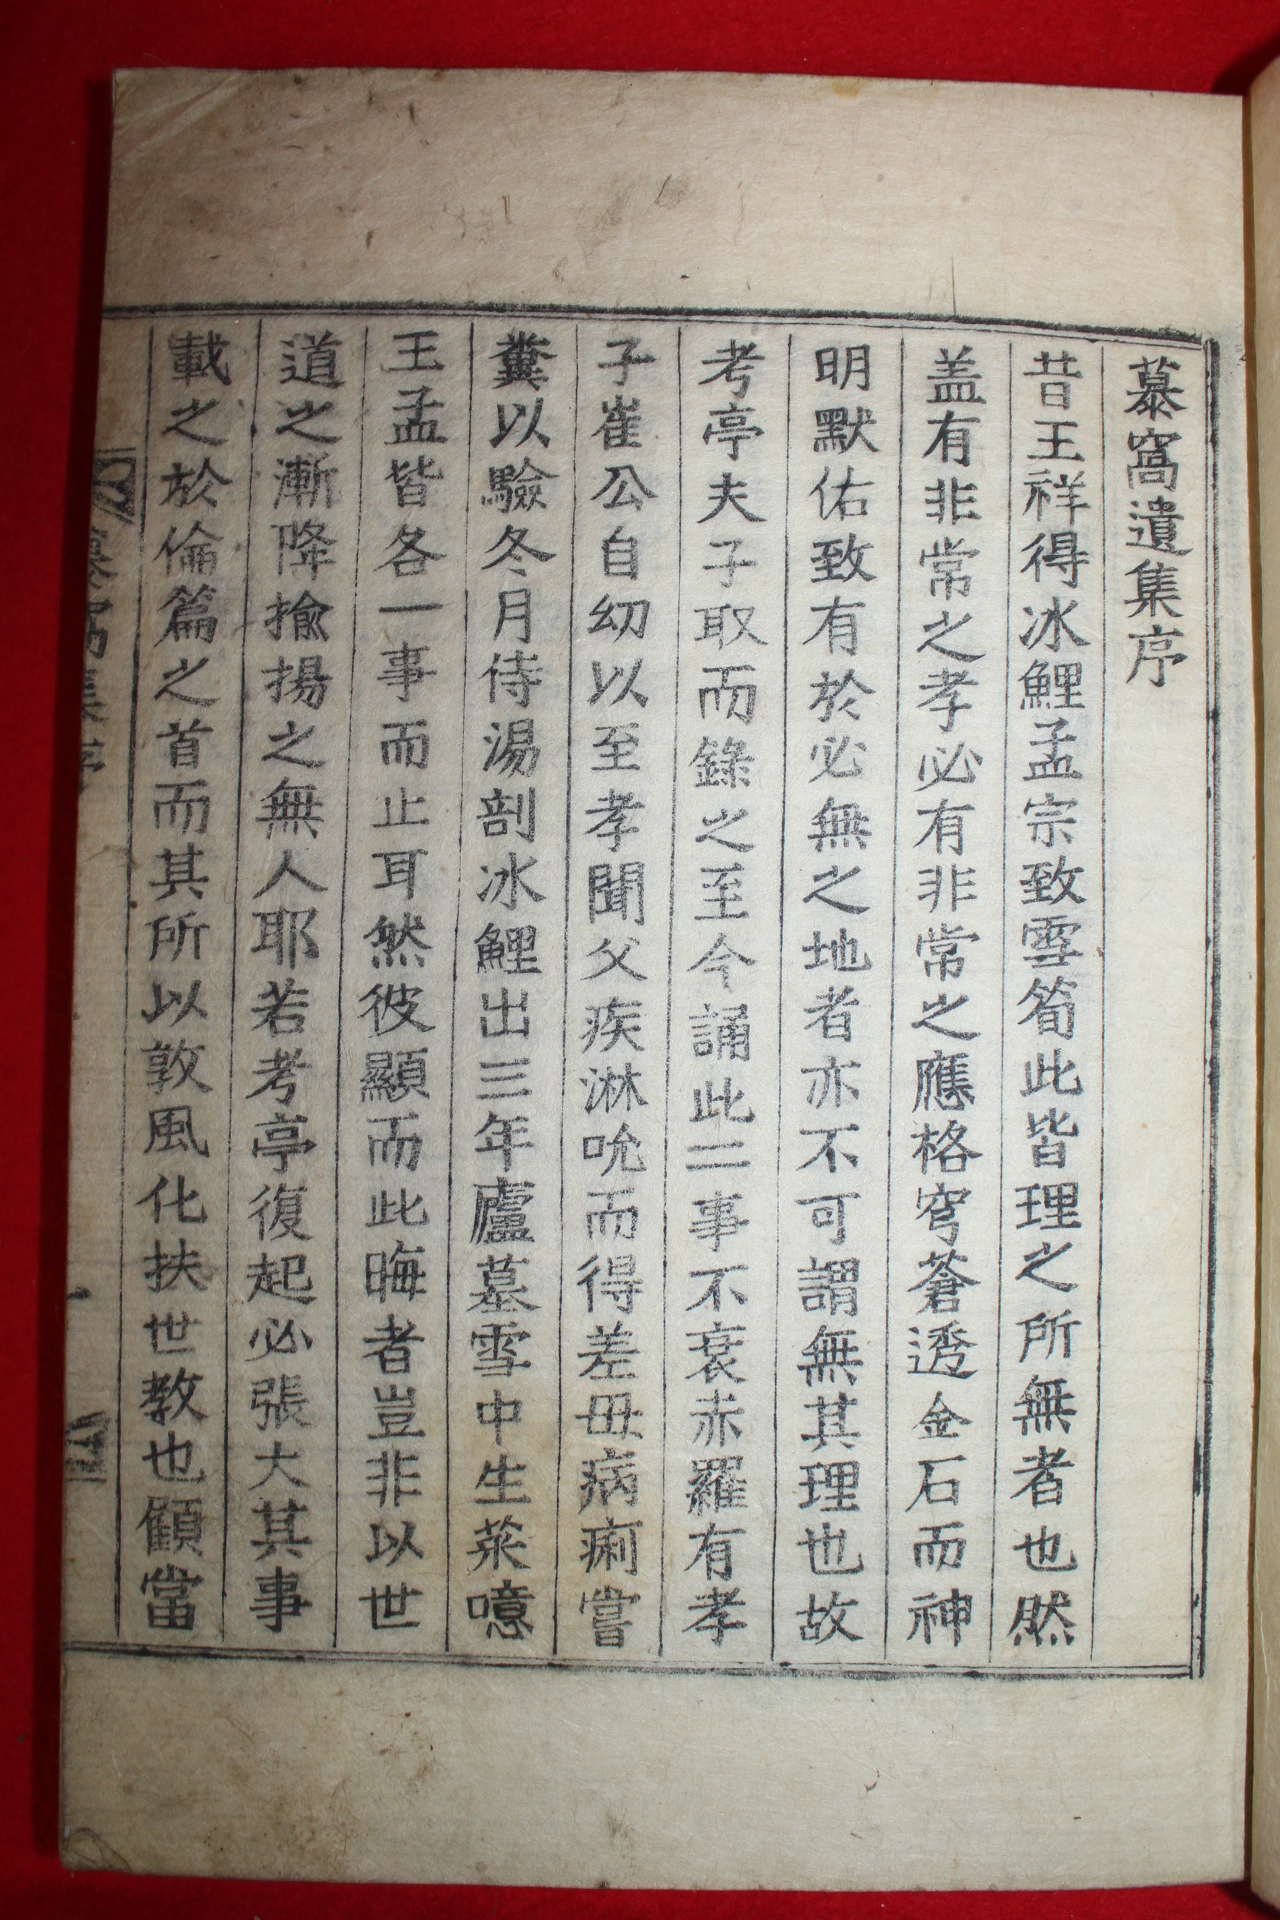 慕窩遺集序
昔王祥得冰鯉孟宗致雪筍此皆理之所無者也然
盖有非常之孝必有非常之應格穹蒼透金石而神
明默佑致有於必無之地者亦不可謂無其理也故
考亭夫子取而錄之至今誦此二事不衰赤羅有孝
子崔公自幼以至孝聞父疾淋吮而得差毋病痢嘗
糞以驗冬月侍湯剖冰鯉出三年廬墓雪中生菜噫
王孟皆各一事而止耳然彼顯而此晦者豈非以世
道之漸降揄揚之無人耶若考亭復起必張大其事
載之於倫篇之首而其所以敦風化扶世教也顧當
慕窩集序